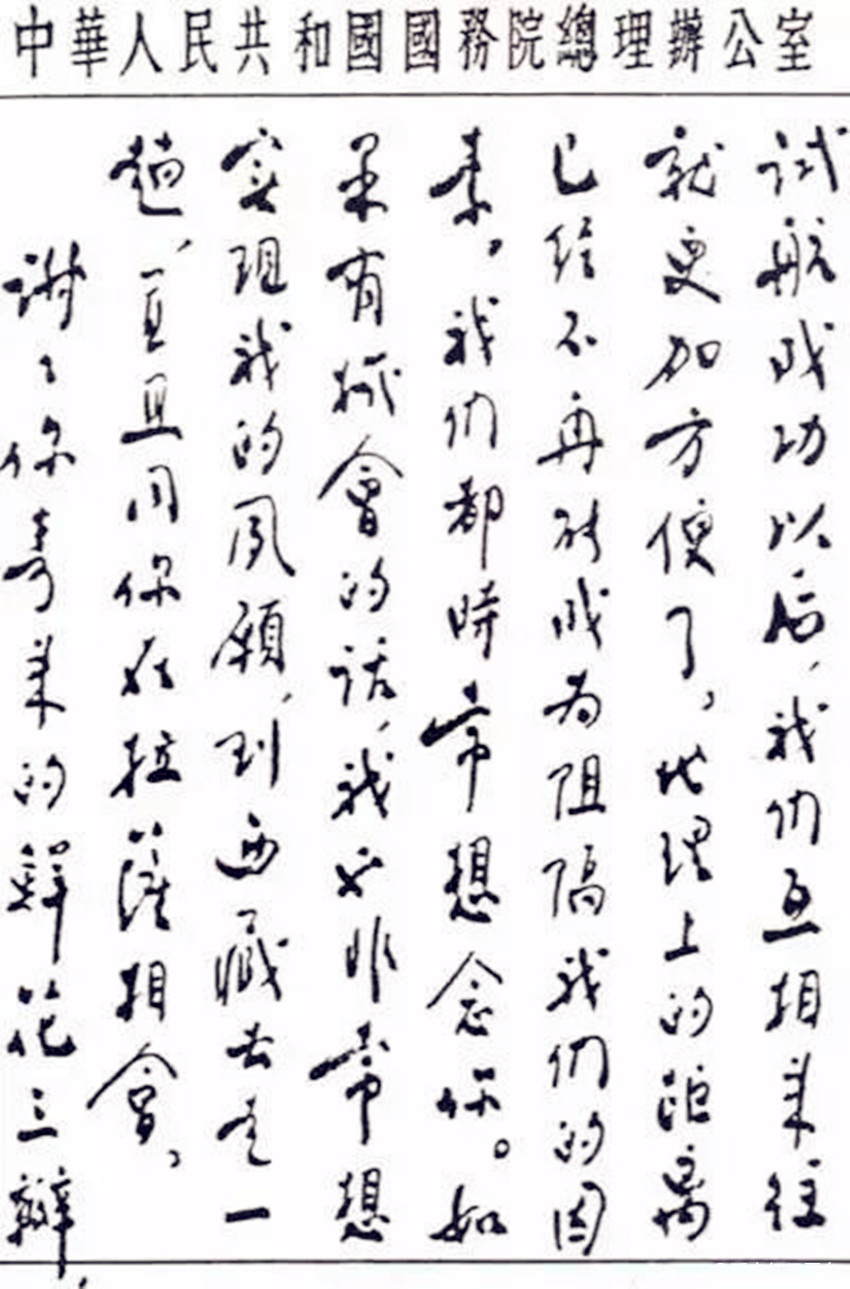 中華人民共和國國務院總理辦公室
试航成功以后，我们互相来往
就更加方便了。地理上的距离
已经不再能成为阻隔我们的因
素。我们都時常想念你。如
果有机會的话，我也非常想
实现我的夙願，到西藏去走一
趟，并且同你在拉薩相會。
谢々你寄来的鲜花三辦，